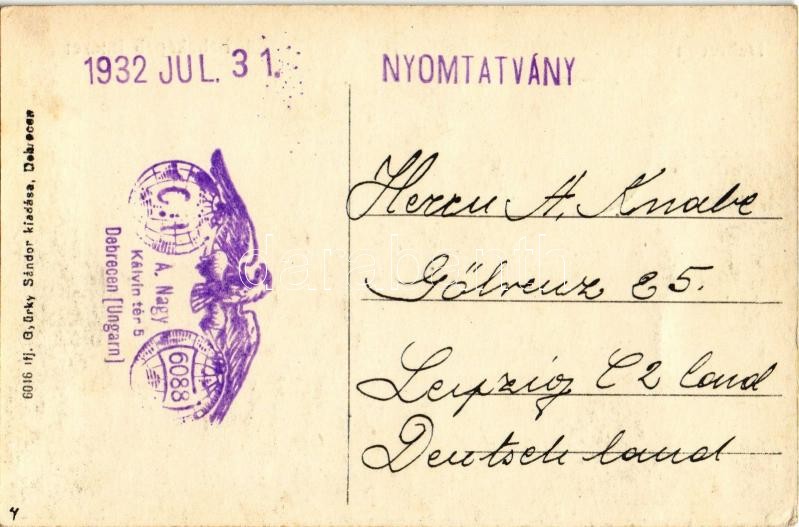 1932 JUL. 31.
NYOMTATVÁNY
6016 Ifj. Gyürky Sándor kiadása, Debrecen
C.t
A. Nagy
Kálvin tér 5
Debrecen [Ungarn]
6088
Herrn A. Knabe
25.
Leipzig C2 land
Deutschland
darabanth
4